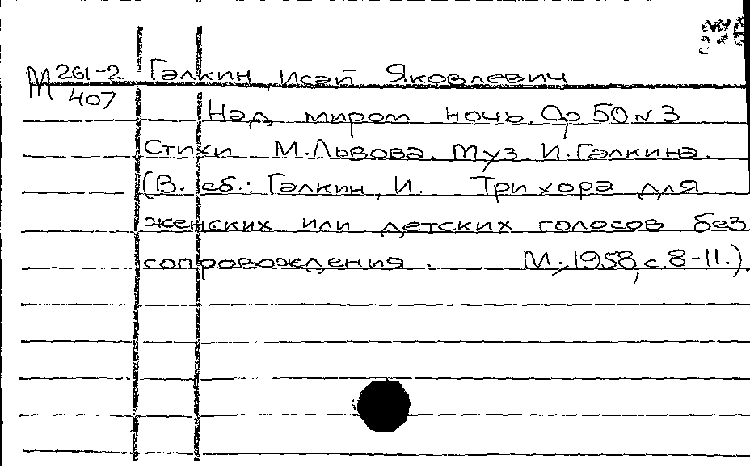 М 261-2 Галкин, Исай Яковлевич
407
Над миром ночь. Ор 50 № 3
Стихи М. Львова. Муз И. Галкина.
(В. сб.: Галкин, И. Три хора для
женских или детских голосов без
сопровождения. М., 1958, с. 8-11.)